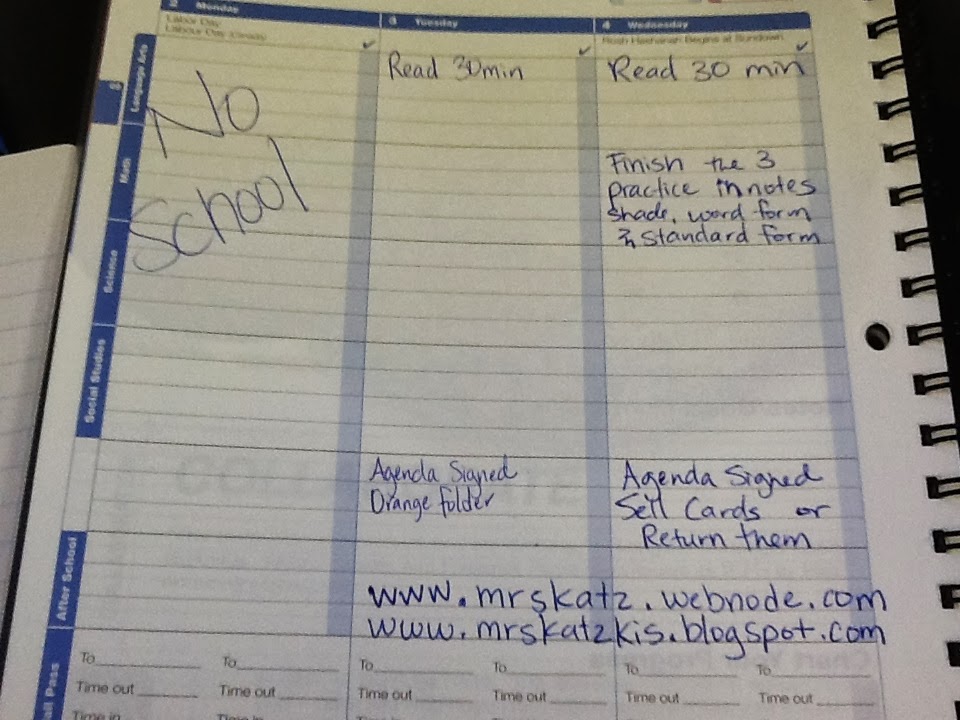 2 Monday
Labor Day
Labour Day (Canada)
No
School
3 Tuesday
Read 30min
4 Wednesday
Rosh Hashanah Begins at Sundown
Read 30 min
Language Arts
Math
Finish the 3
practice in notes
shade, word form
& standard form
Science
Social Studies
Agenda Signed
Orange folder
Agenda Signed
Sell Cards or
Return them
After School
www.mrskatz.webnode.com
www.mrskatzkis.blogspot.com
all Pass
To To To To To To
Time out Time out Time out Time out Time out Time out
Time in